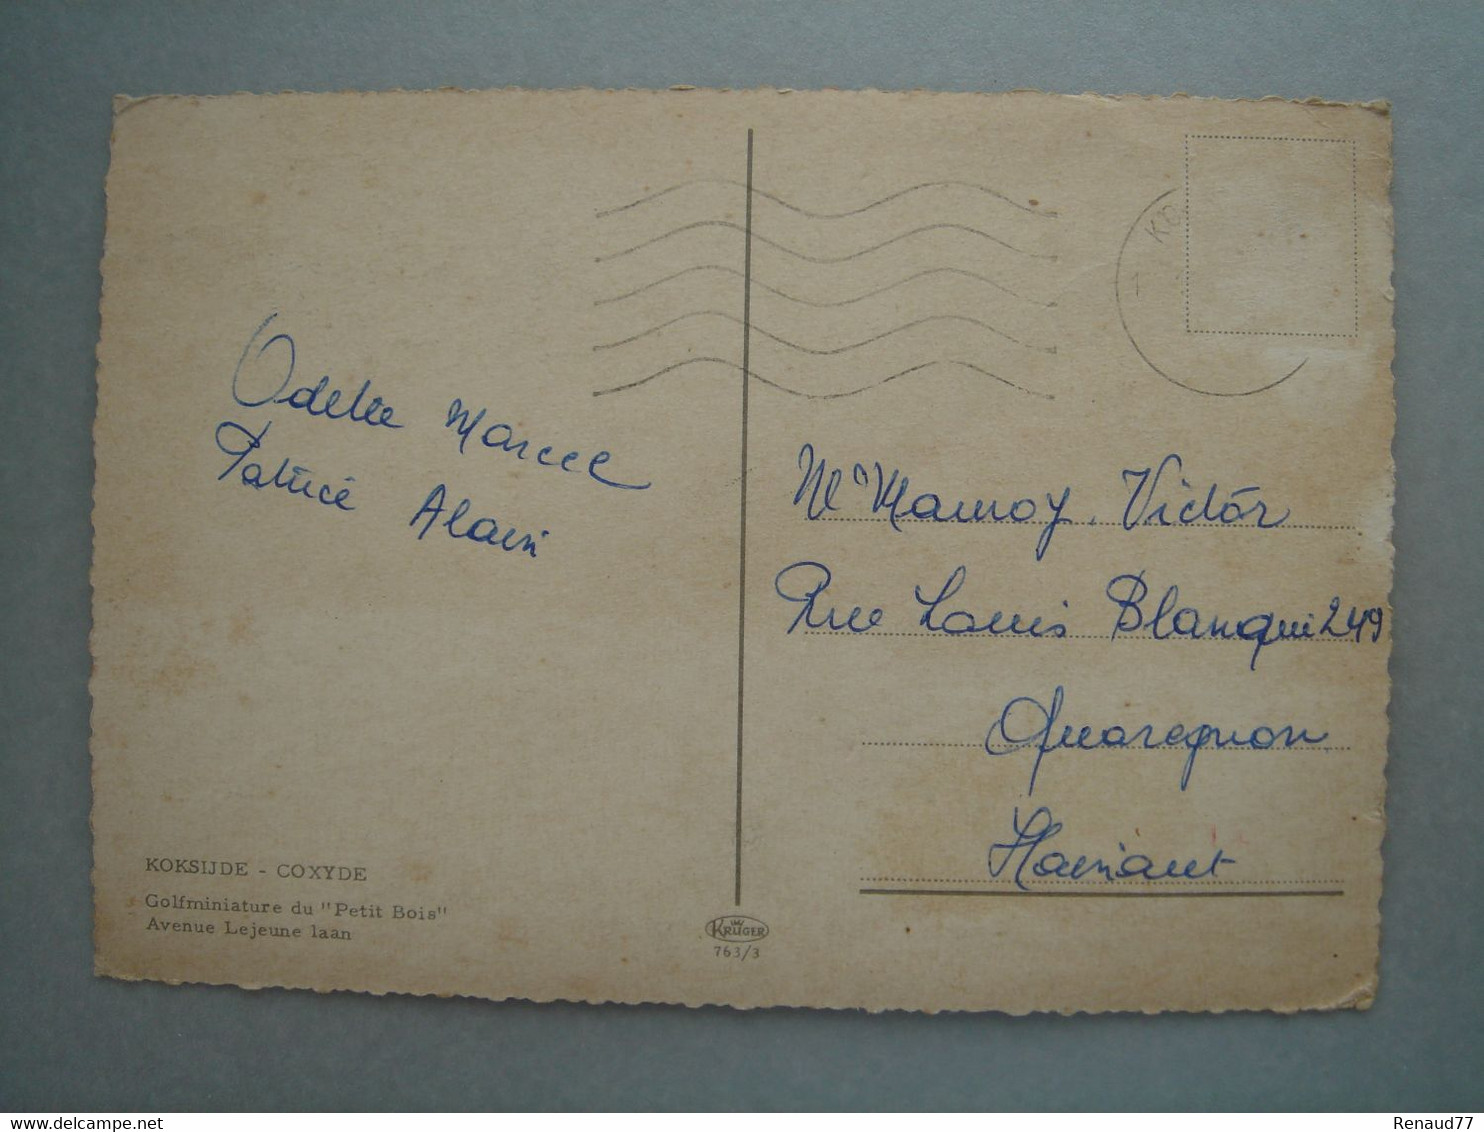 Odette Marcel
Patrice Alain
KOKSIJDE - COXYDE
Golfminiature du "Petit Bois"
Avenue Lejeune laan
KRÜGER
763/3
KO
1
Mr Mauroy. Victor
Rue Louis Blanqui 249
Quaregnon
Hainaut
delcampe.net
Renaud77